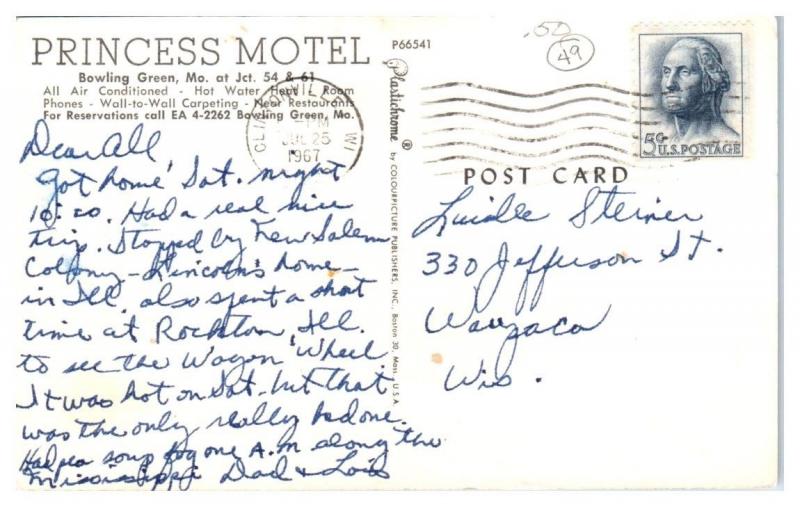 PRINCESS MOTEL
Bowling Green, Mo. at Jct. 54 & 61
All Air Conditioned - Hot Water Heat - Room
Phones - Wall-to-Wall Carpeting - Near Restaurants
For Reservations call EA 4-2262 Bowling Green, Mo.
P66541
.50
49
CLINTONVILLE
PM
JUL 25
1967
WI
5¢ U.S. POSTAGE
Plastichrome ® by COLOURPICTURE PUBLISHERS, INC., Boston 30, Mass., U.S.A.
POST CARD
Dear All
Got home Sat. night
10:20. Had a real nice
trip. Stopped by New Salem
Colony - Lincoln's home -
in Ill. also spent a short
time at Rockton, Ill.
to see the Wagon Wheel.
It was hot on Sat. but that
was the only really bad one.
Had pea soup fog one A.M along the
Mississippi Dad & Lois
Lucille Steiner
330 Jefferson St.
Waupaca
Wis.